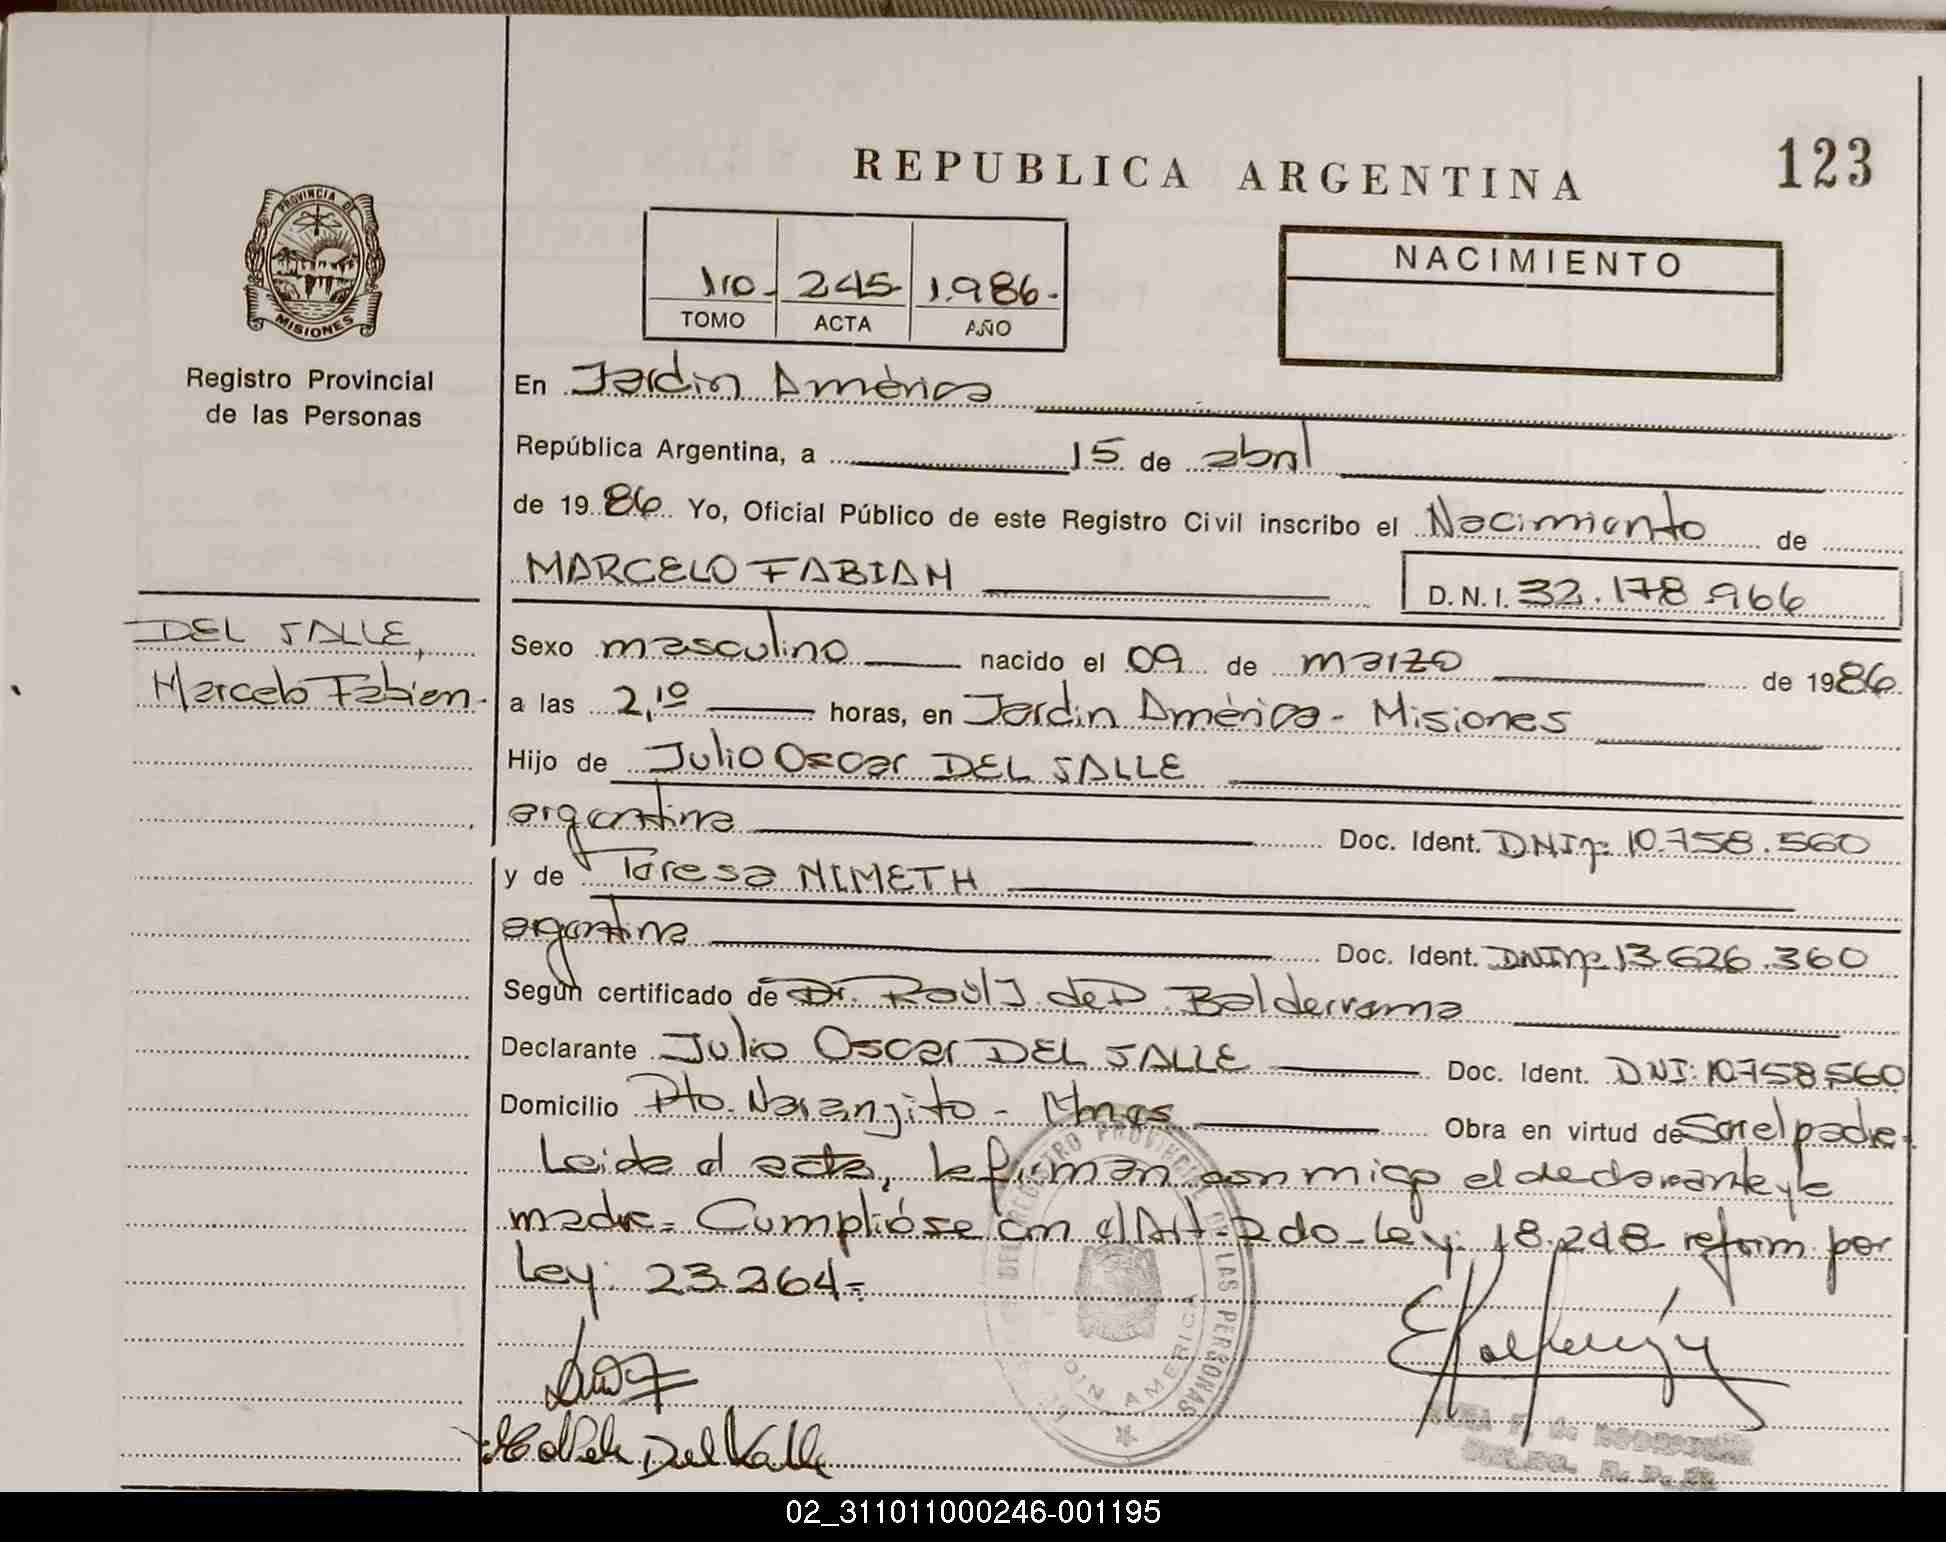 123
REPUBLICA ARGENTINA
PROVINCIA DE
MISIONES
Registro Provincial
de las Personas
1ro. 245 1.986.
TOMO ACTA AÑO
NACIMIENTO
En Jardin América
República Argentina, a 15 de abril
de 19 86 Yo, Oficial Público de este Registro Civil inscribo el Nacimiento de
MARCELO FABIAN D.N.I. 32.178.966
DEL SALLE,
Marcelo Fabian
Sexo masculino nacido el 09 de marzo de 1986
a las 2,10 horas, en Jardin América - Misiones
Hijo de Julio Oscar DEL SALLE
argentina Doc. Ident. DNI nº 10.758.560
y de Teresa NIMETH
argentina Doc. Ident. DNI nº 13.626.360
Según certificado de Dr. Raúl J. de D. Balderrama
Declarante Julio Oscar DEL SALLE Doc. Ident. DNI: 10.758.560
Domicilio Pto. Naranjito - Mnes Obra en virtud de Ser el padre.
Leida el acta, la firman conmigo el declarante y la
madre = Cumplióse con el Art. 2do - Ley: 18.248 reform por
Ley: 23.264 =
DEL REGISTRO PROVINCIAL DE LAS PERSONAS
JARDIN AMERICA
Del Valle
02_311011000246-001195